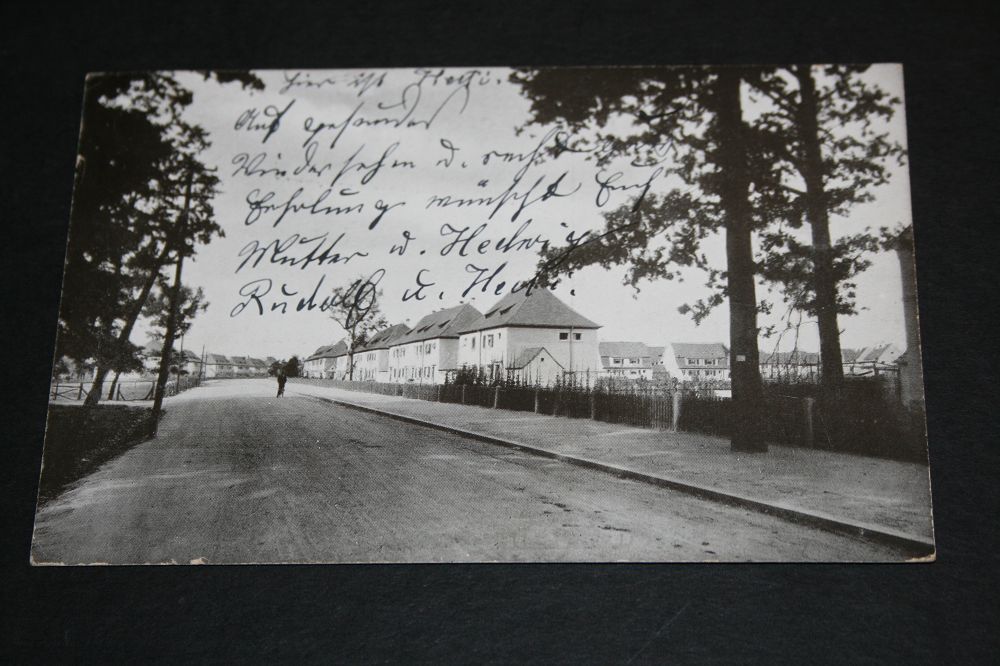 hier ist Hedi.
Auf gesundes
Wiedersehen u. recht
Erholung wünscht Euch
Mutter u. Hedwig
Rudolf u. Hedi.